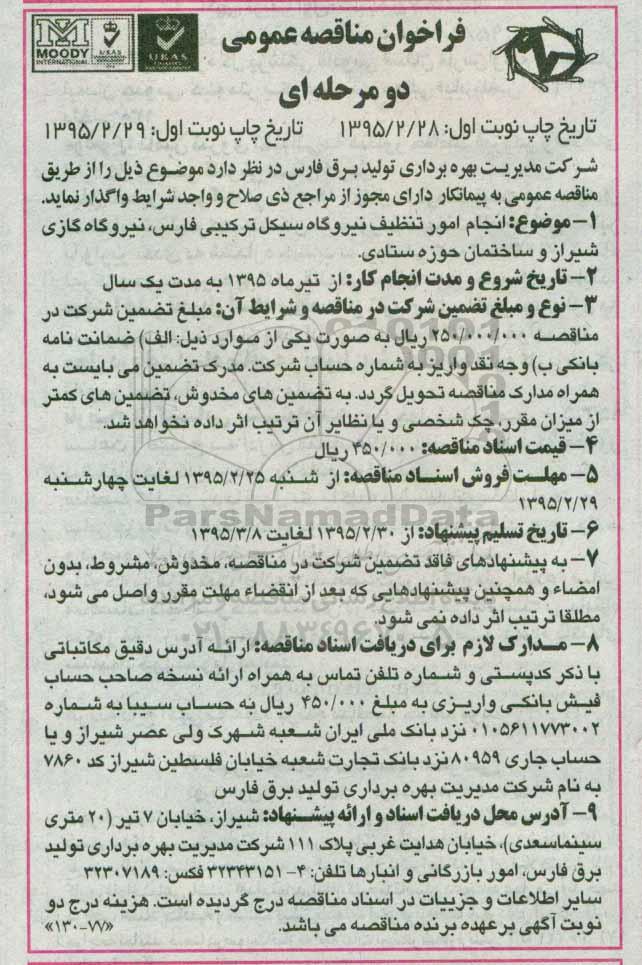 MOODY
INTERNATIONAL
UKAS
UKAS
فراخوان مناقصه عمومی
دو مرحله ای
تاریخ چاپ نوبت اول: ۱۳۹۵/۲/۲۸ تاریخ چاپ نوبت اول: ۱۳۹۵/۲/۲۹
شرکت مدیریت بهره برداری تولید برق فارس در نظر دارد موضوع ذیل را از طریق
مناقصه عمومی به پیمانکار دارای مجوز از مراجع ذی صلاح و واجد شرایط واگذار نماید.
۱– موضوع: انجام امور تنظیف نیروگاه سیکل ترکیبی فارس، نیروگاه گازی
شیراز و ساختمان حوزه ستادی.
۲– تاریخ شروع و مدت انجام کار: از تیرماه ۱۳۹۵ به مدت یک سال
۳– نوع و مبلغ تضمین شرکت در مناقصه و شرایط آن: مبلغ تضمین شرکت در
مناقصه ۲۵۰/۰۰۰/۰۰۰ ریال به صورت یکی از موارد ذیل: الف) ضمانت نامه
بانکی ب) وجه نقد واریز به شماره حساب شرکت. مدرک تضمین می بایست به
همراه مدارک مناقصه تحویل گردد. به تضمین های مخدوش، تضمین های کمتر
از میزان مقرر، چک شخصی و یا نظایر آن ترتیب اثر داده نخواهد شد.
۴– قیمت اسناد مناقصه: ۴۵۰/۰۰۰ ریال
۵– مهلت فروش اسناد مناقصه: از شنبه ۱۳۹۵/۲/۲۵ لغایت چهارشنبه
۱۳۹۵/۲/۲۹
ParsNamadData
۶– تاریخ تسلیم پیشنهاد: از ۱۳۹۵/۲/۳۰ لغایت ۱۳۹۵/۳/۸
۷– به پیشنهادهای فاقد تضمین شرکت در مناقصه، مخدوش، مشروط، بدون
امضاء و همچنین پیشنهادهایی که بعد از انقضاء مهلت مقرر واصل می شود،
مطلقا ترتیب اثر داده نمی شود.
۸– مدارک لازم برای دریافت اسناد مناقصه: ارائه آدرس دقیق مکاتباتی
با ذکر کدپستی و شماره تلفن تماس به همراه ارائه نسخه صاحب حساب
فیش بانکی واریزی به مبلغ ۴۵۰/۰۰۰ ریال به حساب سیبا به شماره
۰۱۰۵۶۱۱۷۷۳۰۰۲ نزد بانک ملی ایران شعبه شهرک ولی عصر شیراز و یا
حساب جاری ۸۰۹۵۹ نزد بانک تجارت شعبه خیابان فلسطین شیراز کد ۷۸۶۰
به نام شرکت مدیریت بهره برداری تولید برق فارس
۹– آدرس محل دریافت اسناد و ارائه پیشنهاد: شیراز، خیابان ۷ تیر (۲۰ متری
سینماسعدی)، خیابان هدایت غربی پلاک ۱۱۱ شرکت مدیریت بهره برداری تولید
برق فارس، امور بازرگانی و انبارها تلفن: ۴–۳۲۳۴۳۱۵۱ فکس: ۳۲۳۰۷۱۸۹
سایر اطلاعات و جزییات در اسناد مناقصه درج گردیده است. هزینه درج دو
نوبت آگهی برعهده برنده مناقصه می باشد. «۱۳۰۰۷۷»